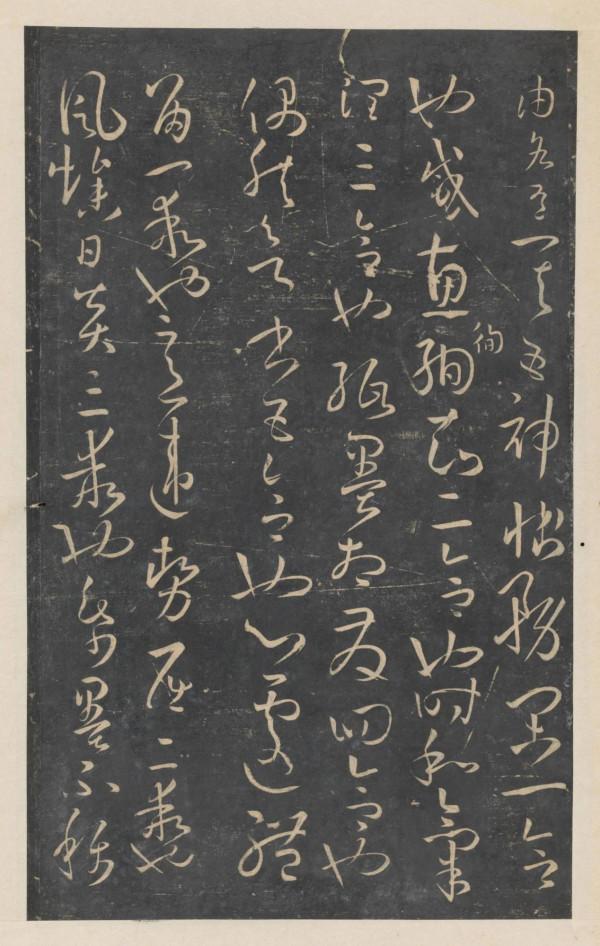 由各有其五神怡務閑一合
也感惠徇知二合也時和氣
潤三合也紙墨相發四合也
偶然欲書五合也心遽體
留一乖也意違勢屈二乖也
風燥日炎三乖也紙墨不稱